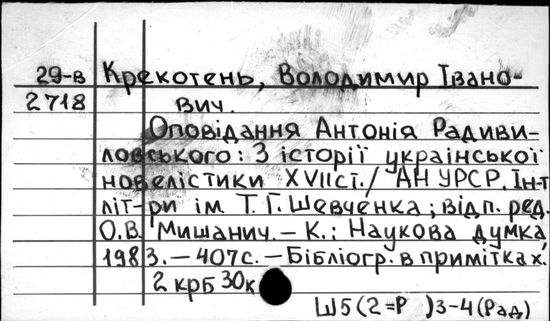 29-в Крекотень, Володимир Івано-
2718 вич.
Оповідання Антонія Радиви-
ловського: З історії української
новелістики XVIIст./ АН УРСР. Ін-т
літ-ри ім. Т.Г.Шевченка; відп. ред.
О.В. Мишанич. – К.: Наукова думка,
1983. – 407с. – Бібліогр. в примітках.
2 крб 30к
Ш5(2=Р )3-4(Рад)